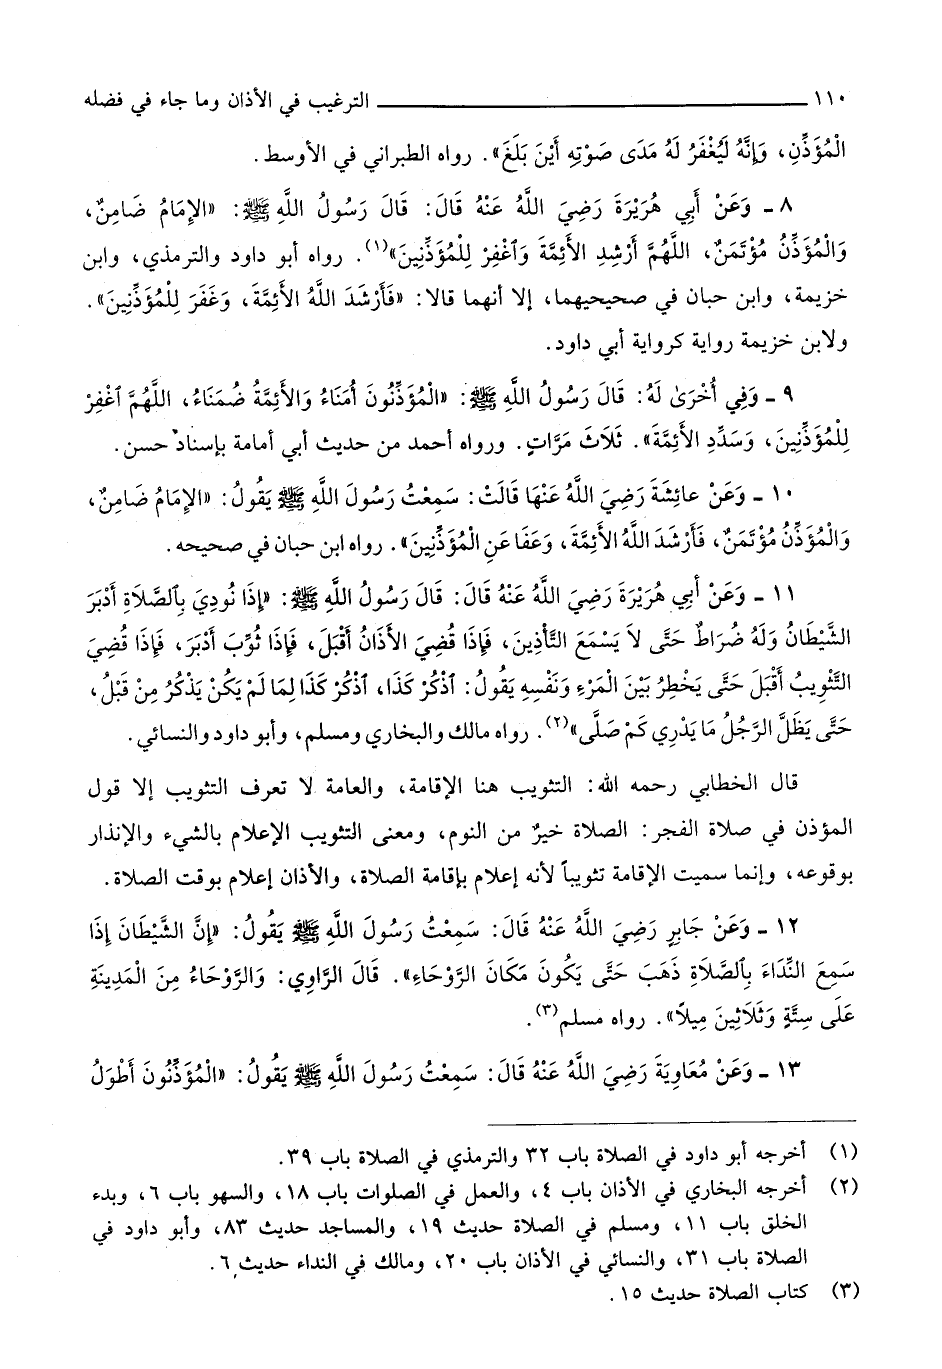 ١١٠ ـــــــــــــــــــــ الترغيب في الأذان وما جاء في فضله
الْمُؤَذِّنِ، وَإِنَّهُ لَيُغْفَرُ لَهُ مَدَى صَوْتِهِ أَيْنَ بَلَغَ». رواه الطبراني في الأوسط.
٨ ـ وَعَنْ أَبِي هُرَيْرَةَ رَضِيَ اللَّهُ عَنْهُ قَالَ: قَالَ رَسُولُ اللَّهِ ﷺ: «الإِمَامُ ضَامِنٌ،
وَالْمُؤَذِّنُ مُؤْتَمَنٌ، اللَّهُمَّ أَرْشِدِ الأَئِمَّةَ وَٱغْفِرْ لِلْمُؤَذِّنِينَ»(١). رواه أبو داود والترمذي، وابن
خزيمة، وابن حبان في صحيحيهما، إلا أنهما قالا: «فَأَرْشَدَ اللَّهُ الأَئِمَّةَ، وَغَفَرَ لِلْمُؤَذِّنِينَ».
ولابن خزيمة رواية كرواية أبي داود.
٩ ـ وَفِي أُخْرَىٰ لَهُ: قَالَ رَسُولُ اللَّهِ ﷺ: «الْمُؤَذِّنُونَ أُمَنَاءُ وَالأَئِمَّةُ ضُمَنَاءُ، اللَّهُمَّ ٱغْفِرْ
لِلْمُؤَذِّنِينَ، وَسَدِّدِ الأَئِمَّةَ». ثَلَاثَ مَرَّاتٍ. ورواه أحمد من حديث أبي أمامة بإسناد حسن.
١٠ ـ وَعَنْ عائِشَةَ رَضِيَ اللَّهُ عَنْهَا قَالَتْ: سَمِعْتُ رَسُولَ اللَّهِ ﷺ يَقُولُ: «الإِمَامُ ضَامِنٌ،
وَالْمُؤَذِّنُ مُؤْتَمَنٌ، فَأَرْشَدَ اللَّهُ الأَئِمَّةَ، وَعَفَا عَنِ الْمُؤَذِّنِينَ». رواه ابن حبان في صحيحه.
١١ ـ وَعَنْ أَبِي هُرَيْرَةَ رَضِيَ اللَّهُ عَنْهُ قَالَ: قَالَ رَسُولُ اللَّهِ ﷺ: «إِذَا نُودِيَ بِٱلصَّلَاةِ أَدْبَرَ
الشَّيْطَانُ وَلَهُ ضُرَاطٌ حَتَّى لاَ يَسْمَعَ التَّأْذِينَ، فَإِذَا قُضِيَ الأَذَانُ أَقْبَلَ، فَإِذَا ثُوِّبَ أَدْبَرَ، فَإِذَا قُضِيَ
التَّثْوِيبُ أَقْبَلَ حَتَّى يَخْطِرُ بَيْنَ الْمَرْءِ وَنَفْسِهِ يَقُولُ: ٱذْكُرْ كَذَا، ٱذْكُرْ كَذَا لِمَا لَمْ يَكُنْ يَذْكُرُ مِنْ قَبْلُ،
حَتَّى يَظَلَّ الرَّجُلُ مَا يَدْرِي كَمْ صَلَّى»(٢). رواه مالك والبخاري ومسلم، وأبو داود والنسائي.
قال الخطابي رحمه الله: التثويب هنا الإقامة، والعامة لا تعرف التثويب إلا قول
المؤذن في صلاة الفجر: الصلاة خيرٌ من النوم، ومعنى التثويب الإعلام بالشيء والإنذار
بوقوعه، وإنما سميت الإقامة تثويباً لأنه إعلام بإقامة الصلاة، والأذان إعلام بوقت الصلاة.
١٢ ـ وَعَنْ جَابِرٍ رَضِيَ اللَّهُ عَنْهُ قَالَ: سَمِعْتُ رَسُولَ اللَّهِ ﷺ يَقُولُ: «إِنَّ الشَّيْطَانَ إِذَا
سَمِعَ النِّدَاءَ بِٱلصَّلَاةِ ذَهَبَ حَتَّى يَكُونَ مَكَانَ الرَّوْحَاءِ». قَالَ الرَّاوِي: وَالرَّوْحَاءُ مِنَ الْمَدِينَةِ
عَلَى سِتَّةٍ وَثَلَاثِينَ مِيلاً». رواه مسلم(٣).
١٣ ـ وَعَنْ مُعَاوِيَةَ رَضِيَ اللَّهُ عَنْهُ قَالَ: سَمِعْتُ رَسُولَ اللَّهِ ﷺ يَقُولُ: «الْمُؤَذِّنُونَ أَطْوَلُ
(١) أخرجه أبو داود في الصلاة باب ٣٢ والترمذي في الصلاة باب ٣٩.
(٢) أخرجه البخاري في الأذان باب ٤، والعمل في الصلوات باب ١٨، والسهو باب ٦، وبدء
الخلق باب ١١، ومسلم في الصلاة حديث ١٩، والمساجد حديث ٨٣، وأبو داود في
الصلاة باب ٣١، والنسائي في الأذان باب ٢٠، ومالك في النداء حديث ٦.
(٣) كتاب الصلاة حديث ١٥.